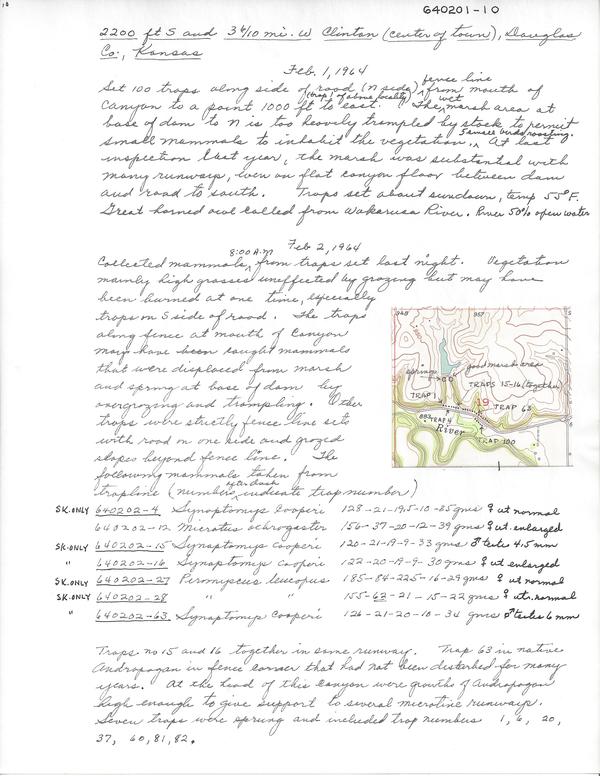 640201-10
2200 ft S and 3 6/10 mi. W Clinton (center of town), Douglas
Co., Kansas
Feb. 1, 1964
fence line
Set 100 traps along side of road (N side) from mouth of
(trap 1 at above locality) wet
Canyon to a point 1000 ft to east. The marsh area at
base of dam to N is too heavely trampled by stock to permit
5 small birds roosting.
small mammals to inhabit the vegetation. At last
inspection last year, the marsh was substantial with
many runways, even on flat canyon floor between dam
and road to south. Traps set about sundown, temp 55°F.
Great horned owl called from Wakarusa River. River 50% open water
Feb 2, 1964
8:00 A.M
Collected mammals from traps set last night. Vegetation
mainly high grasses uneffected by grazing but may have
been burned at one time, especially
traps on S side of road. The traps
along fence at mouth of Canyon
may have been caught mammals
that were displaced from marsh
and spring at base of dam by
overgrazing and trampling. Other
traps were strictly fence line sets
with road on one side and grazed
slopes beyond fence line. The
following mammals taken from
after dash
trapline (numbers indicate trap number)
948
957
springs
good marsh area
TRAPS 15-16 (together)
TRAP 1
19
TRAP 63
882
TRAP 4
River
TRAP 100
SK. ONLY 640202-4 Synaptomys cooperi 128-21-19.5-10-25 gms ♀ ut normal
640202-12 Microtus ochrogaster 156-37-20-12-39 gms ♀ ut. enlarged
SK. ONLY 640202-15 Synaptomys cooperi 120-21-19-9-33 gms ♂ testes 4.5 mm
" 640202-16 Synaptomys cooperi 122-20-19-9-30 gms ♀ ut enlarged
SK. ONLY 640202-27 Peromyscus leucopus 185-84-22.5-16-29 gms ♀ ut normal
SK. ONLY 640202-28 " " 155-62-21-15-22 gms ♀ ut. normal
" 640202-63 Synaptomys cooperi 126-21-20-10-34 gms ♂ testes 6 mm
Traps no 15 and 16 together in same runway. Trap 63 in native
Andropogan in fence corner that had not been disterbed for many
years. At the head of this Canyon were growths of Andropogan
high enough to give support to several microtine runways.
Seven traps were sprung and included trap numbers 1, 6, 20,
37, 60, 81, 82.